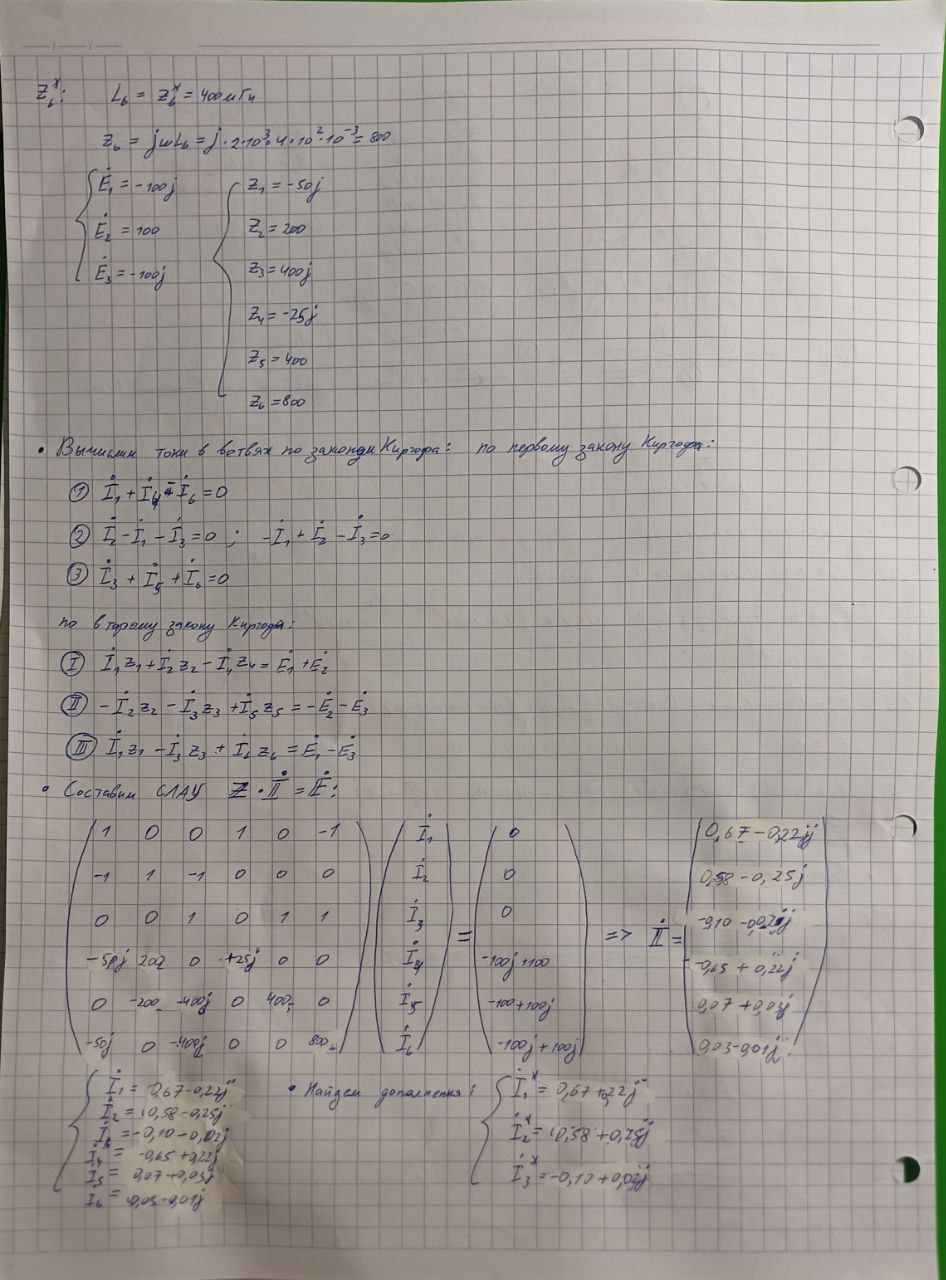 Z₆ˣ: L₆ = Z₆ˣ = 400мГн
Z₆ = jωL₆ = j·2·10³·4·10²·10⁻³ = 800
Ė₁ = -100j
Ė₂ = 100
Ė₃ = -100j
Z₁ = -50j
Z₂ = 200
Z₃ = 400j
Z₄ = -25j
Z₅ = 400
Z₆ = 800
• Вычислим токи в ветвях по законам Кирхгофа: по первому закону Кирхгофа:
① İ₁ + İ₄ - İ₆ = 0
② İ₂ - İ₁ - İ₃ = 0 ; -İ₁ + İ₂ - İ₃ = 0
③ İ₃ + İ₅ + İ₆ = 0
по второму закону Кирхгофа:
Ⅰ İ₁Z₁ + İ₂Z₂ - İ₄Z₄ = Ė₁ + Ė₂
Ⅱ -İ₂Z₂ - İ₃Z₃ + İ₅Z₅ = -Ė₂ - Ė₃
Ⅲ İ₁Z₁ - İ₃Z₃ + İ₆Z₆ = Ė₁ - Ė₃
• Составим СЛАУ Z · İ = Ė:
1 0 0 1 0 -1 İ₁ 0 0,67 - 0,22j
-1 1 -1 0 0 0 İ₂ 0 0,58 - 0,25j
0 0 1 0 1 1 İ₃ = 0 => İ = -0,10 - 0,02j
-50j 200 0 +25j 0 0 İ₄ -100j + 100 -0,65 + 0,22j
0 -200 -400j 0 400 0 İ₅ -100 + 100j 0,07 + 0,03j
-50j 0 -400j 0 0 800 İ₆ -100j + 100j 0,03 - 0,01j
İ₁ = 0,67 - 0,22j
İ₂ = 0,58 - 0,25j
İ₃ = -0,10 - 0,02j
İ₄ = -0,65 + 0,22j
İ₅ = 0,07 + 0,03j
İ₆ = 0,03 - 0,01j
• Найдем дополнения:
İ₁ˣ = 0,67 + 0,22j
İ₂ˣ = 0,58 + 0,25j
İ₃ˣ = -0,10 + 0,02j